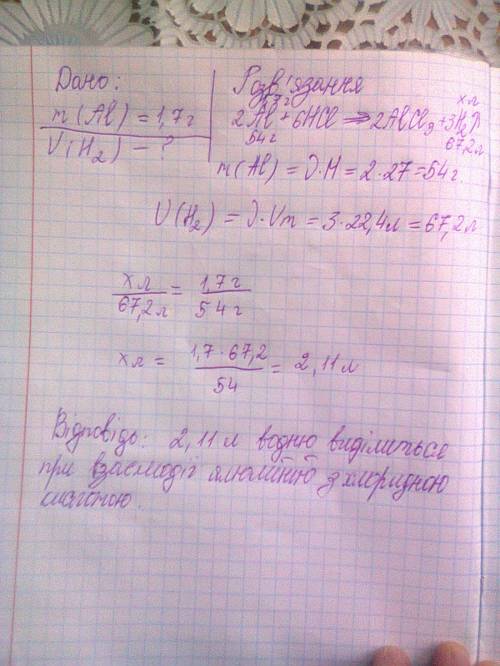 Дано:
m(Al) = 1,7г
V(H₂) - ?
Розв'язання
1,7г хл
2Al + 6HCl => 2AlCl₃ + 3H₂↑
54г 67,2л
m(Al) = ν·M = 2·27 = 54г.
V(H₂) = ν·Vm = 3·22,4л = 67,2л
хл/67,2л = 1,7г/54г
хл = 1,7·67,2/54 = 2,11л
Відповідь: 2,11л водню виділиться
при взаємодії алюмінію з хлоридною
кислотою.